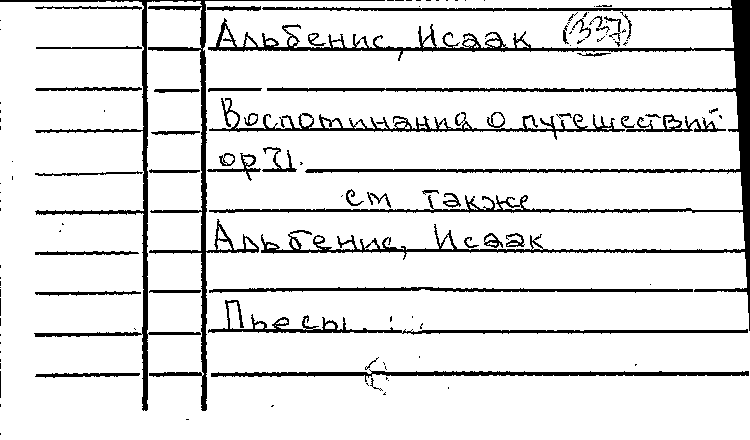 Альбенис, Исаак (337)
Воспоминания о путешествий
op 71.
см также
Альбенис, Исаак
Пьесы.